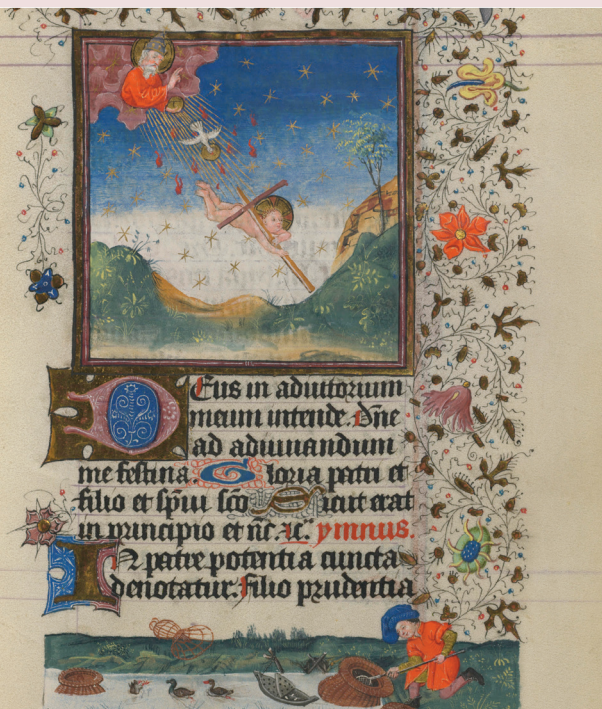 Deus in adiutorium
meum intende. Dñe
ad adiuuandum
me festina. Gloria patri et
filio et spũi scõ Sicut erat
in principio et nc̃. ⁊c̃. ymnus.
In patre potentia cuncta
denotatur. filio prudentia